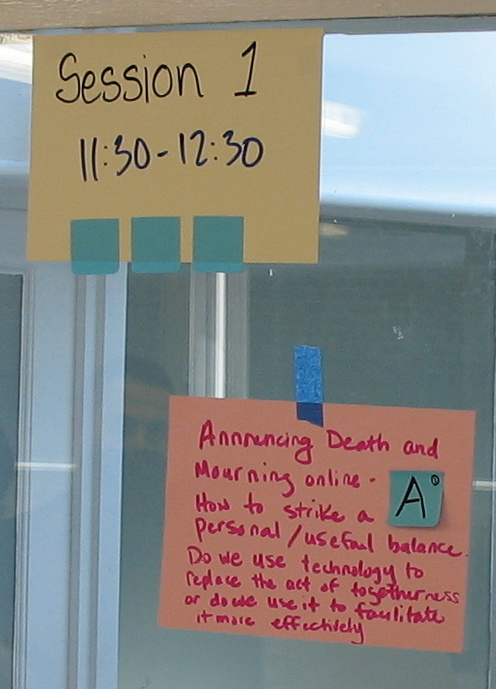 Session 1
11:30-12:30
Annnuncing Death and
Mourning online -
How to strike a
A°
personal/useful balance.
Do we use technology to
replace the act of togetherness
or do we use it to facilitate
it more effectively